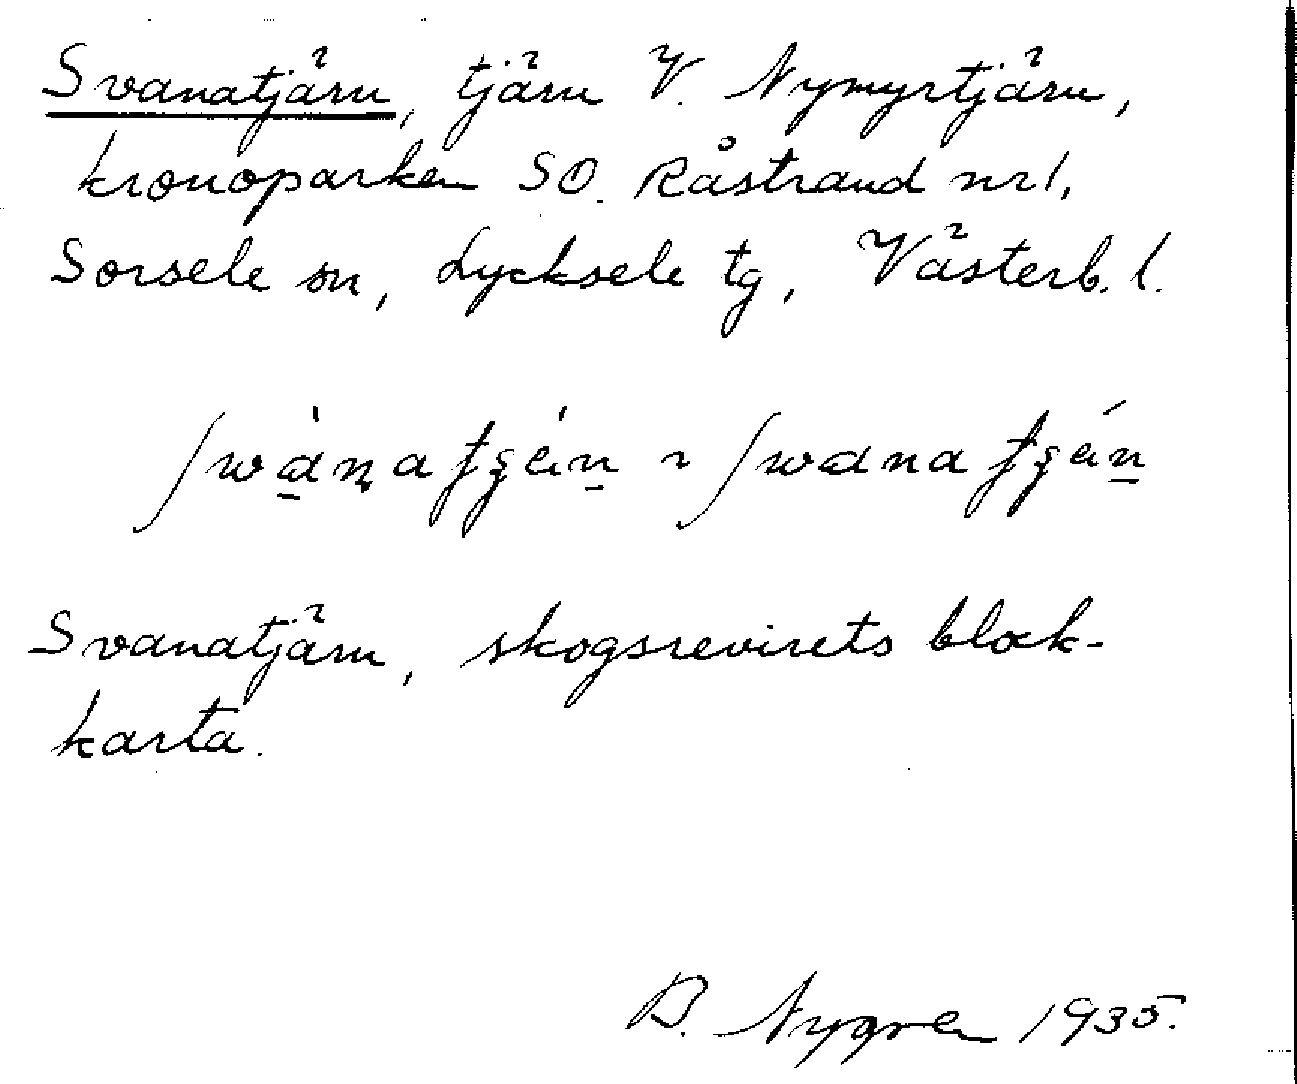 Svanatjärn, tjärn V. Nymyrtjärn,
kronoparken SO. Råstrand nr 1,
Sorsele sn, Lycksele tg, Västerb. l.
Svanatjärn, skogsrevirets block-
karta.
B. Nygren 1935.